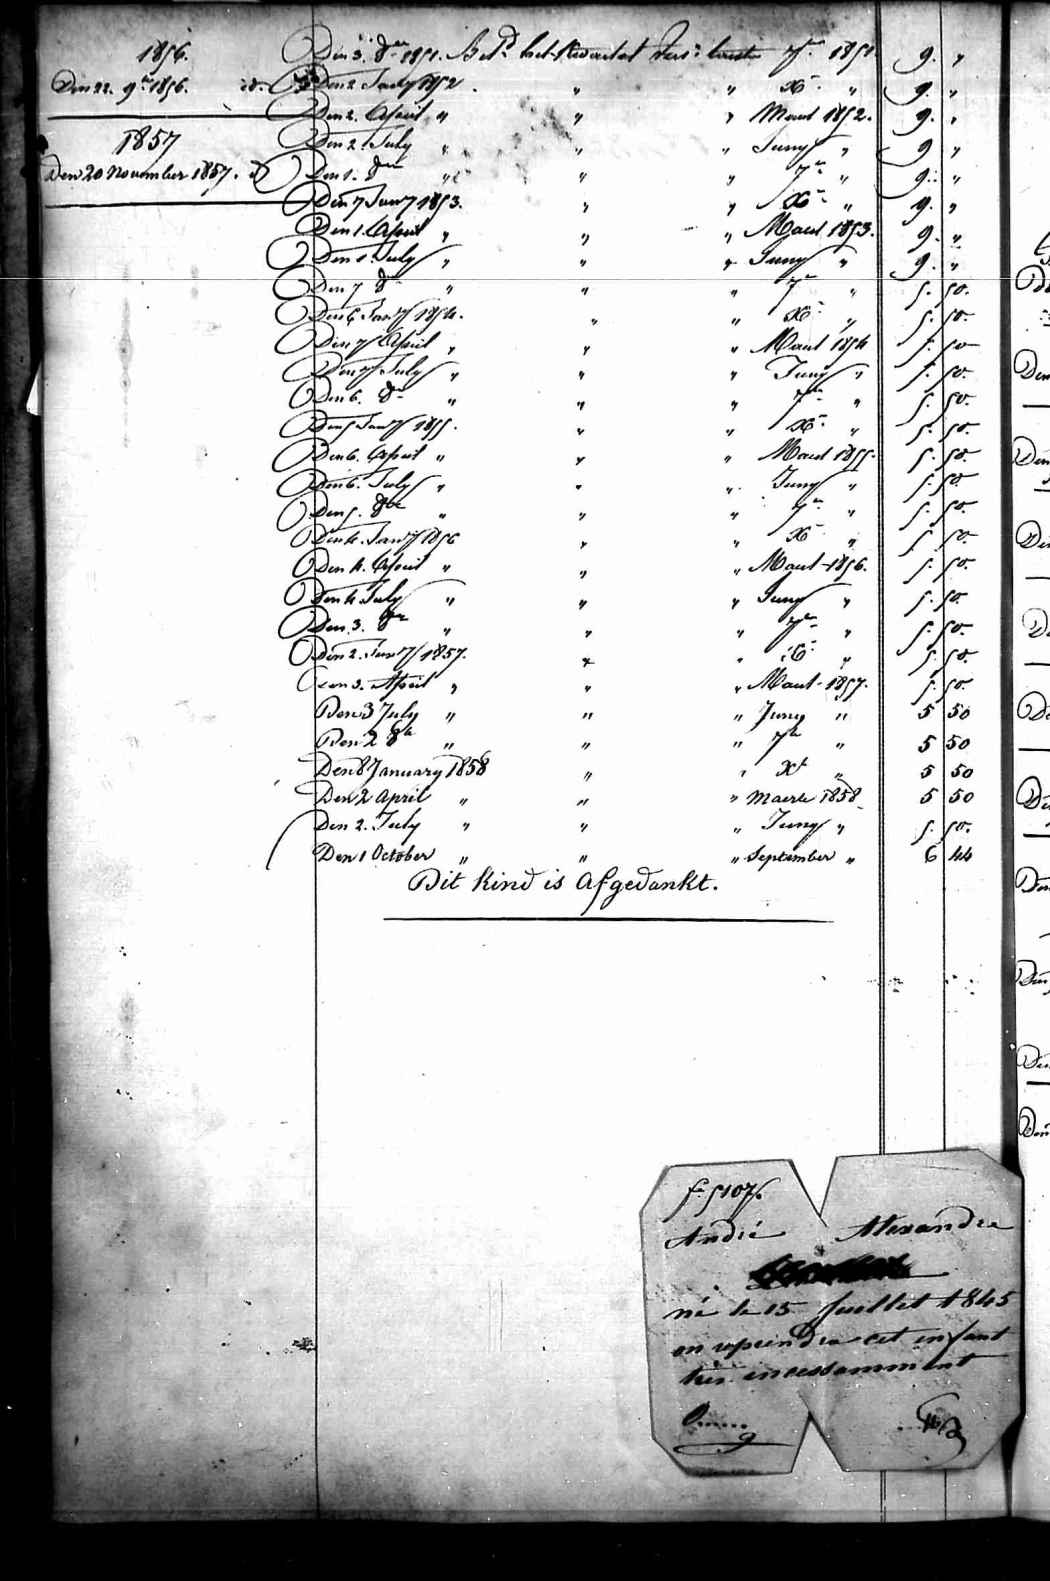 1856.
Den 22. 9re 1856. id.
1857
Den 20 November 1857. id
Den 3. 8re 1851. Bet.d het Kwartaal 7re 1851 9. "
Den 2. January 1852 " " Xre " 9. "
Den 2. April " " " Maart 1852. 9. "
Den 2. July " " " Juny " 9 "
Den 1. 8re " " " 7re " 9. "
Den 7 Jany 1853. " " Xre " 9. "
Den 1. April " " " Maart 1853. 9. "
Den 1. July " " " Juny " 9. "
Den 7 8re " " " 7re " 5. 50.
Den 6 Jany 1854. " " Xre " 5. 50.
Den 7 April " " " Maart 1854 5. 50
Den 7 July " " " Juny " 5. 50.
Den 6. 8re " " " 7re " 5. 50.
Den 5 Jany 1855. " " Xre " 5. 50.
Den 6. April " " " Maart 1855. 5. 50.
Den 6. July " " " Juny " 5. 50.
Den 5. 8re " " " 7re " 5. 50.
Den 4. Jany 1856 " " Xre " 5. 50.
Den 4. April " " " Maart 1856. 5. 50.
Den 4 July " " " Juny " 5. 50.
Den 3. 8re " " " 7re " 5. 50.
Den 2. Jany 1857. " " Xre " 5. 50.
Den 3. April " " " Maart 1857. 5. 50.
Den 3 July " " " Juny " 5 50
Den 2 8re " " " 7re " 5 50
Den 8 January 1858 " " Xr " 5 50
Den 2 April " " " Maerte 1858 5 50
Den 2. July " " " Juny " 5. 50.
Den 1 October " " " September " 6 44
Dit kind is afgedankt.
fo 5107.
André Alexandre
né le 15 Juillet 1845
on reprendra cet enfant
très incessamment